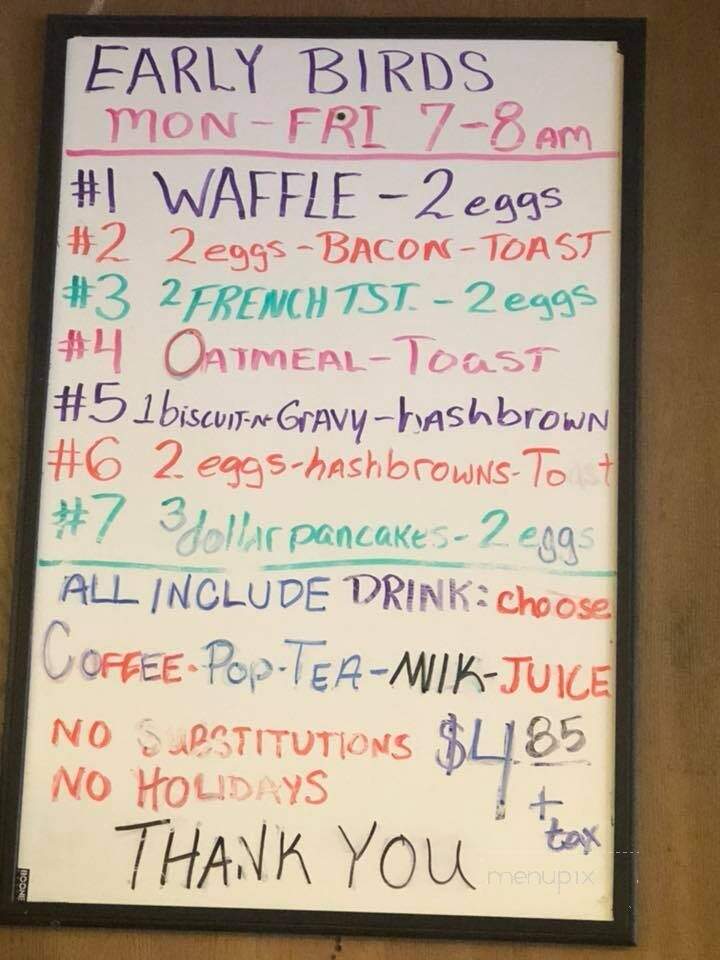 EARLY BIRDS
MON-FRI 7-8 AM
#1 WAFFLE - 2 eggs
#2 2 eggs - BACON - TOAST
#3 2 FRENCH TST. - 2 eggs
#4 OATMEAL - TOAST
#5 1 biscuit-n-GRAVY - hashbrown
#6 2 eggs - hashbrowns - Toast
#7 3 dollar pancakes - 2 eggs
ALL INCLUDE DRINK: choose
COFFEE - POP - TEA - MIlK - JUICE
NO SUBSTITUTIONS $4 85
NO HOLIDAYS + tax
THANK YOU
menupix
BOONE